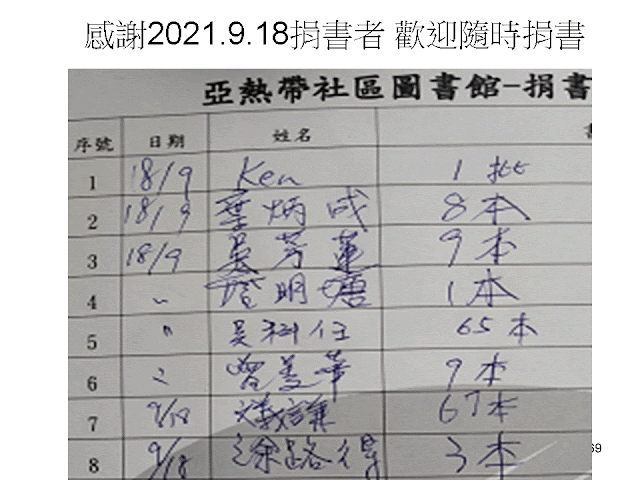 感謝2021.9.18捐書者 歡迎隨時捐書
亞熱帶社區圖書館-捐書
序號 日期 姓名
1 18/9 Ken 1 批
2 18/9 葉炳成 8本
3 18/9 吳芳蓮 9本
4 〃 明 1本
5 〃 吳科任 65本
6 〃 曾美華 9本
7 9/18 67本
8 9/18 涂路得 3本
69